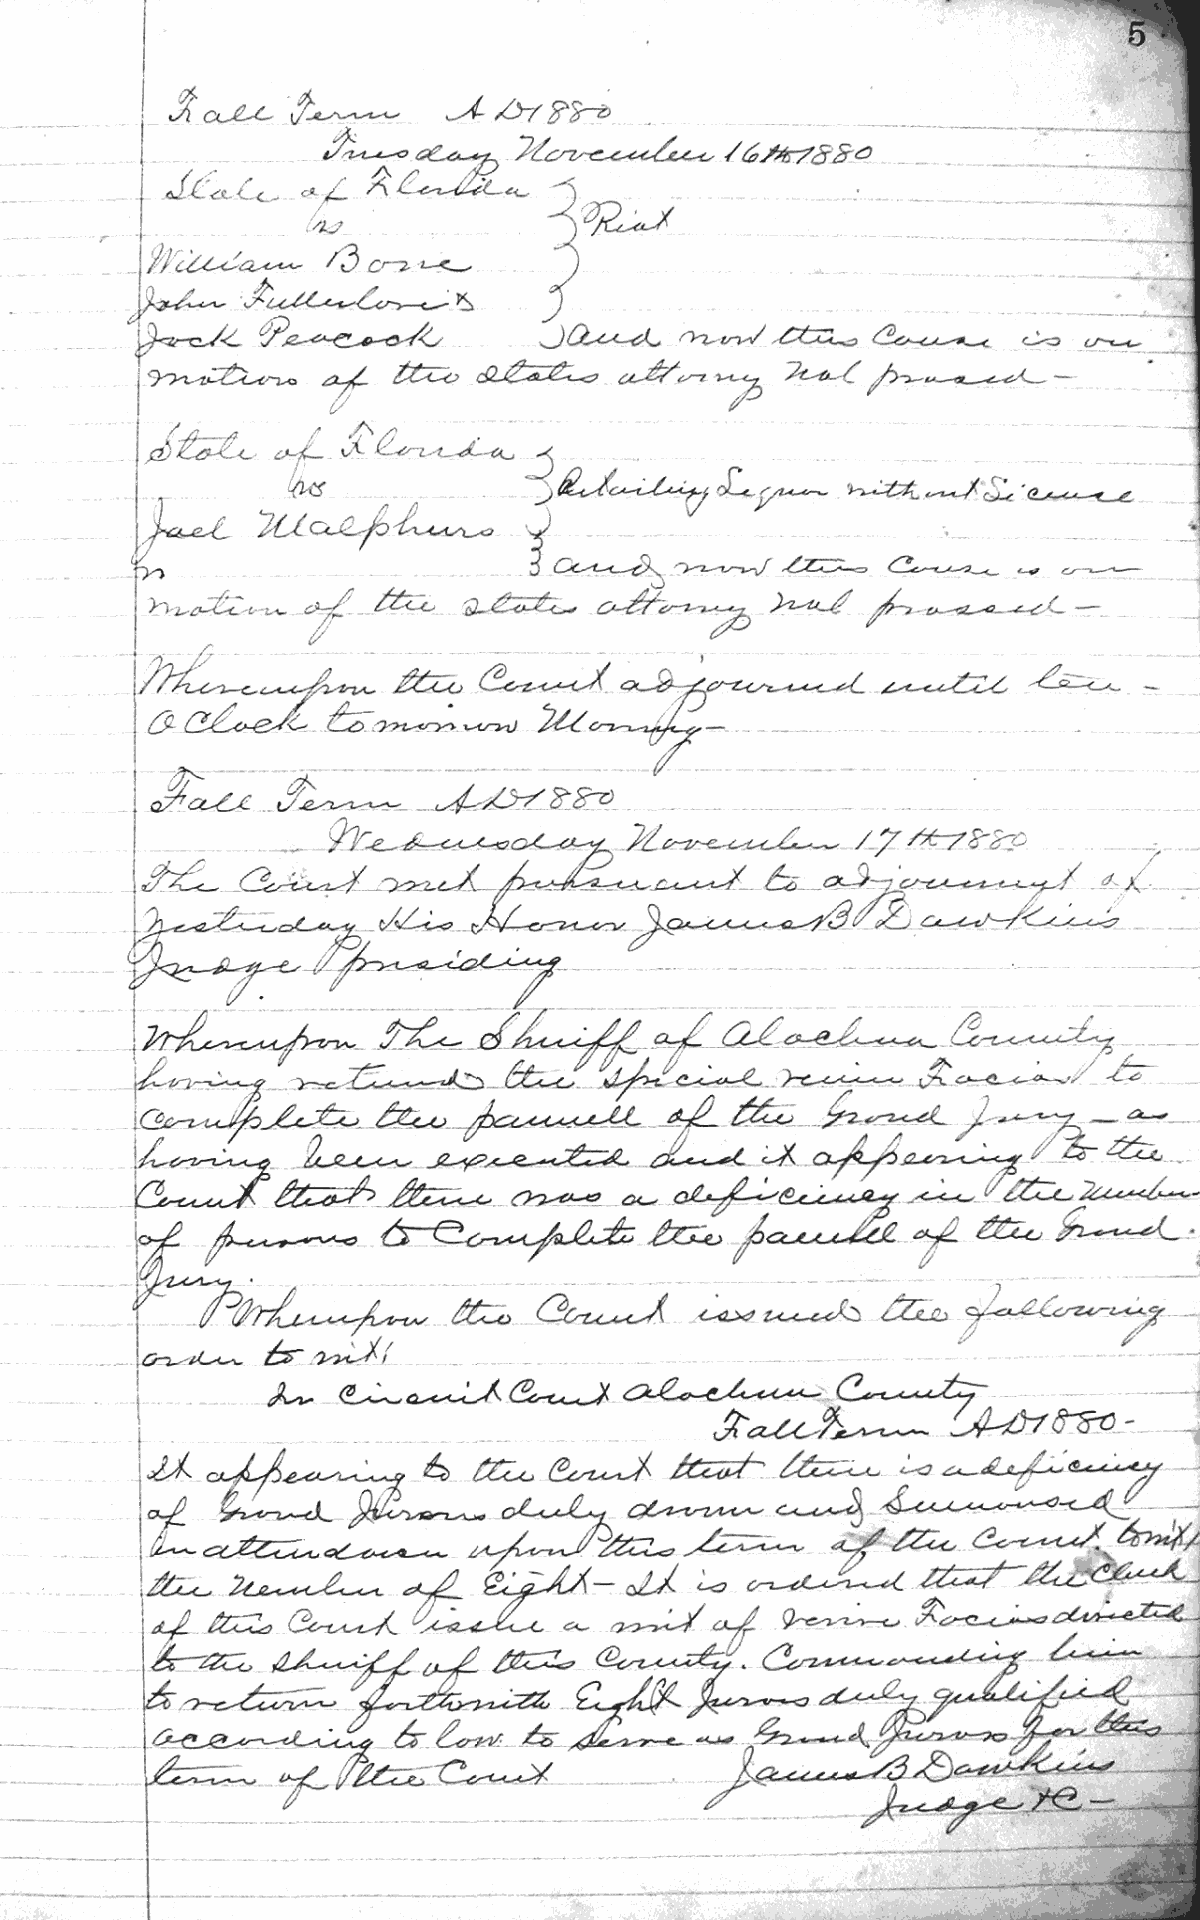 5
Fall Term AD 1880
Tuesday November 16th 1880
State of Florida
vs } Riot
William Bone
John Fullerlove &
Jack Peacock } and now this Cause is on
motion of the states attorney nol prossed -
State of Florida
vs } Retailing Liquor without License
Joel Malphurs
} and now this Cause is on
motion of the states attorney nol prossed -
Whereupon the Court adjourned until ten -
O Clock tomorrow Morning -
Fall Term AD 1880
Wednesday November 17th 1880
The Court met pursuant to adjournmt of
Yesterday His Honor James B Dawkins
Judge presiding
Whereupon The Sheriff of Alachua County
having returned the special venire Facias to
complete the pannell of the Grand Jury - as
having been executed and it appearing to the
Court that there was a deficiency in the Number
of persons to Complete the pannell of the Grand
Jury.
Whereupon the Court issued the following
order to wit!
In Circuit Court Alachua County
Fall Term AD 1880 -
It appearing to the Court that there is a deficiency
of Grand Jurors duly drawn and Summonsed
in attendance upon this term of the Court. to wit
the Number of Eight - It is ordered that the Clerk
of this Court issue a writ of venire Facias directed
to the sheriff of this County. Commanding him
to return forthwith Eight Jurors duly qualified
according to law to Serve as Grand Jurors for this
term of the Court James B Dawkins
Judge &C -